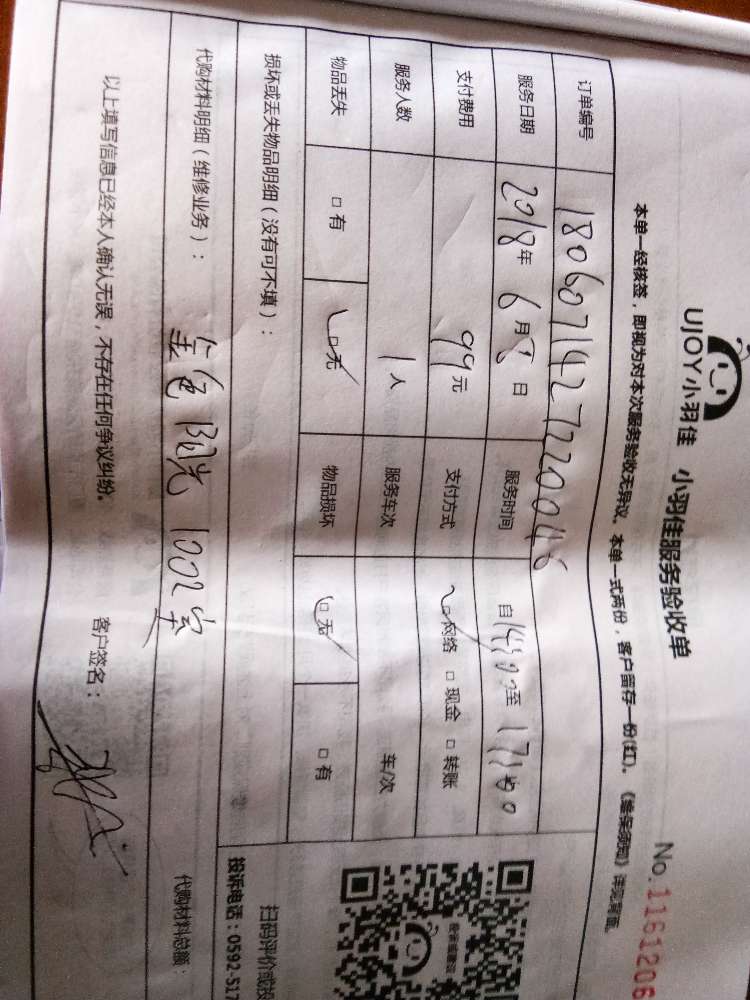 UJOY小羽佳 小羽佳服务验收单
No.1161206
本单一经核签，即视为对本次服务验收无异议。本单一式两份，客户留存一份(红)。《售后须知》详见背面。
订单编号 18060714272200048
服务日期 2018年6月8日 服务时间 自14:00至17:00
支付费用 99元 支付方式 ☑网络 □现金 □转账
服务人数 1人 服务车次 车/次
物品丢失 □有 ☑无 物品损坏 ☑无 □有
损坏或丢失物品明细（没有可不填）：
扫码评价或投
投诉电话：0592-517
代购材料明细（维修业务）： 金色阳光1002室 代购材料总额：
以上填写信息已经本人确认无误，不存在任何争议纠纷。 客户签名：